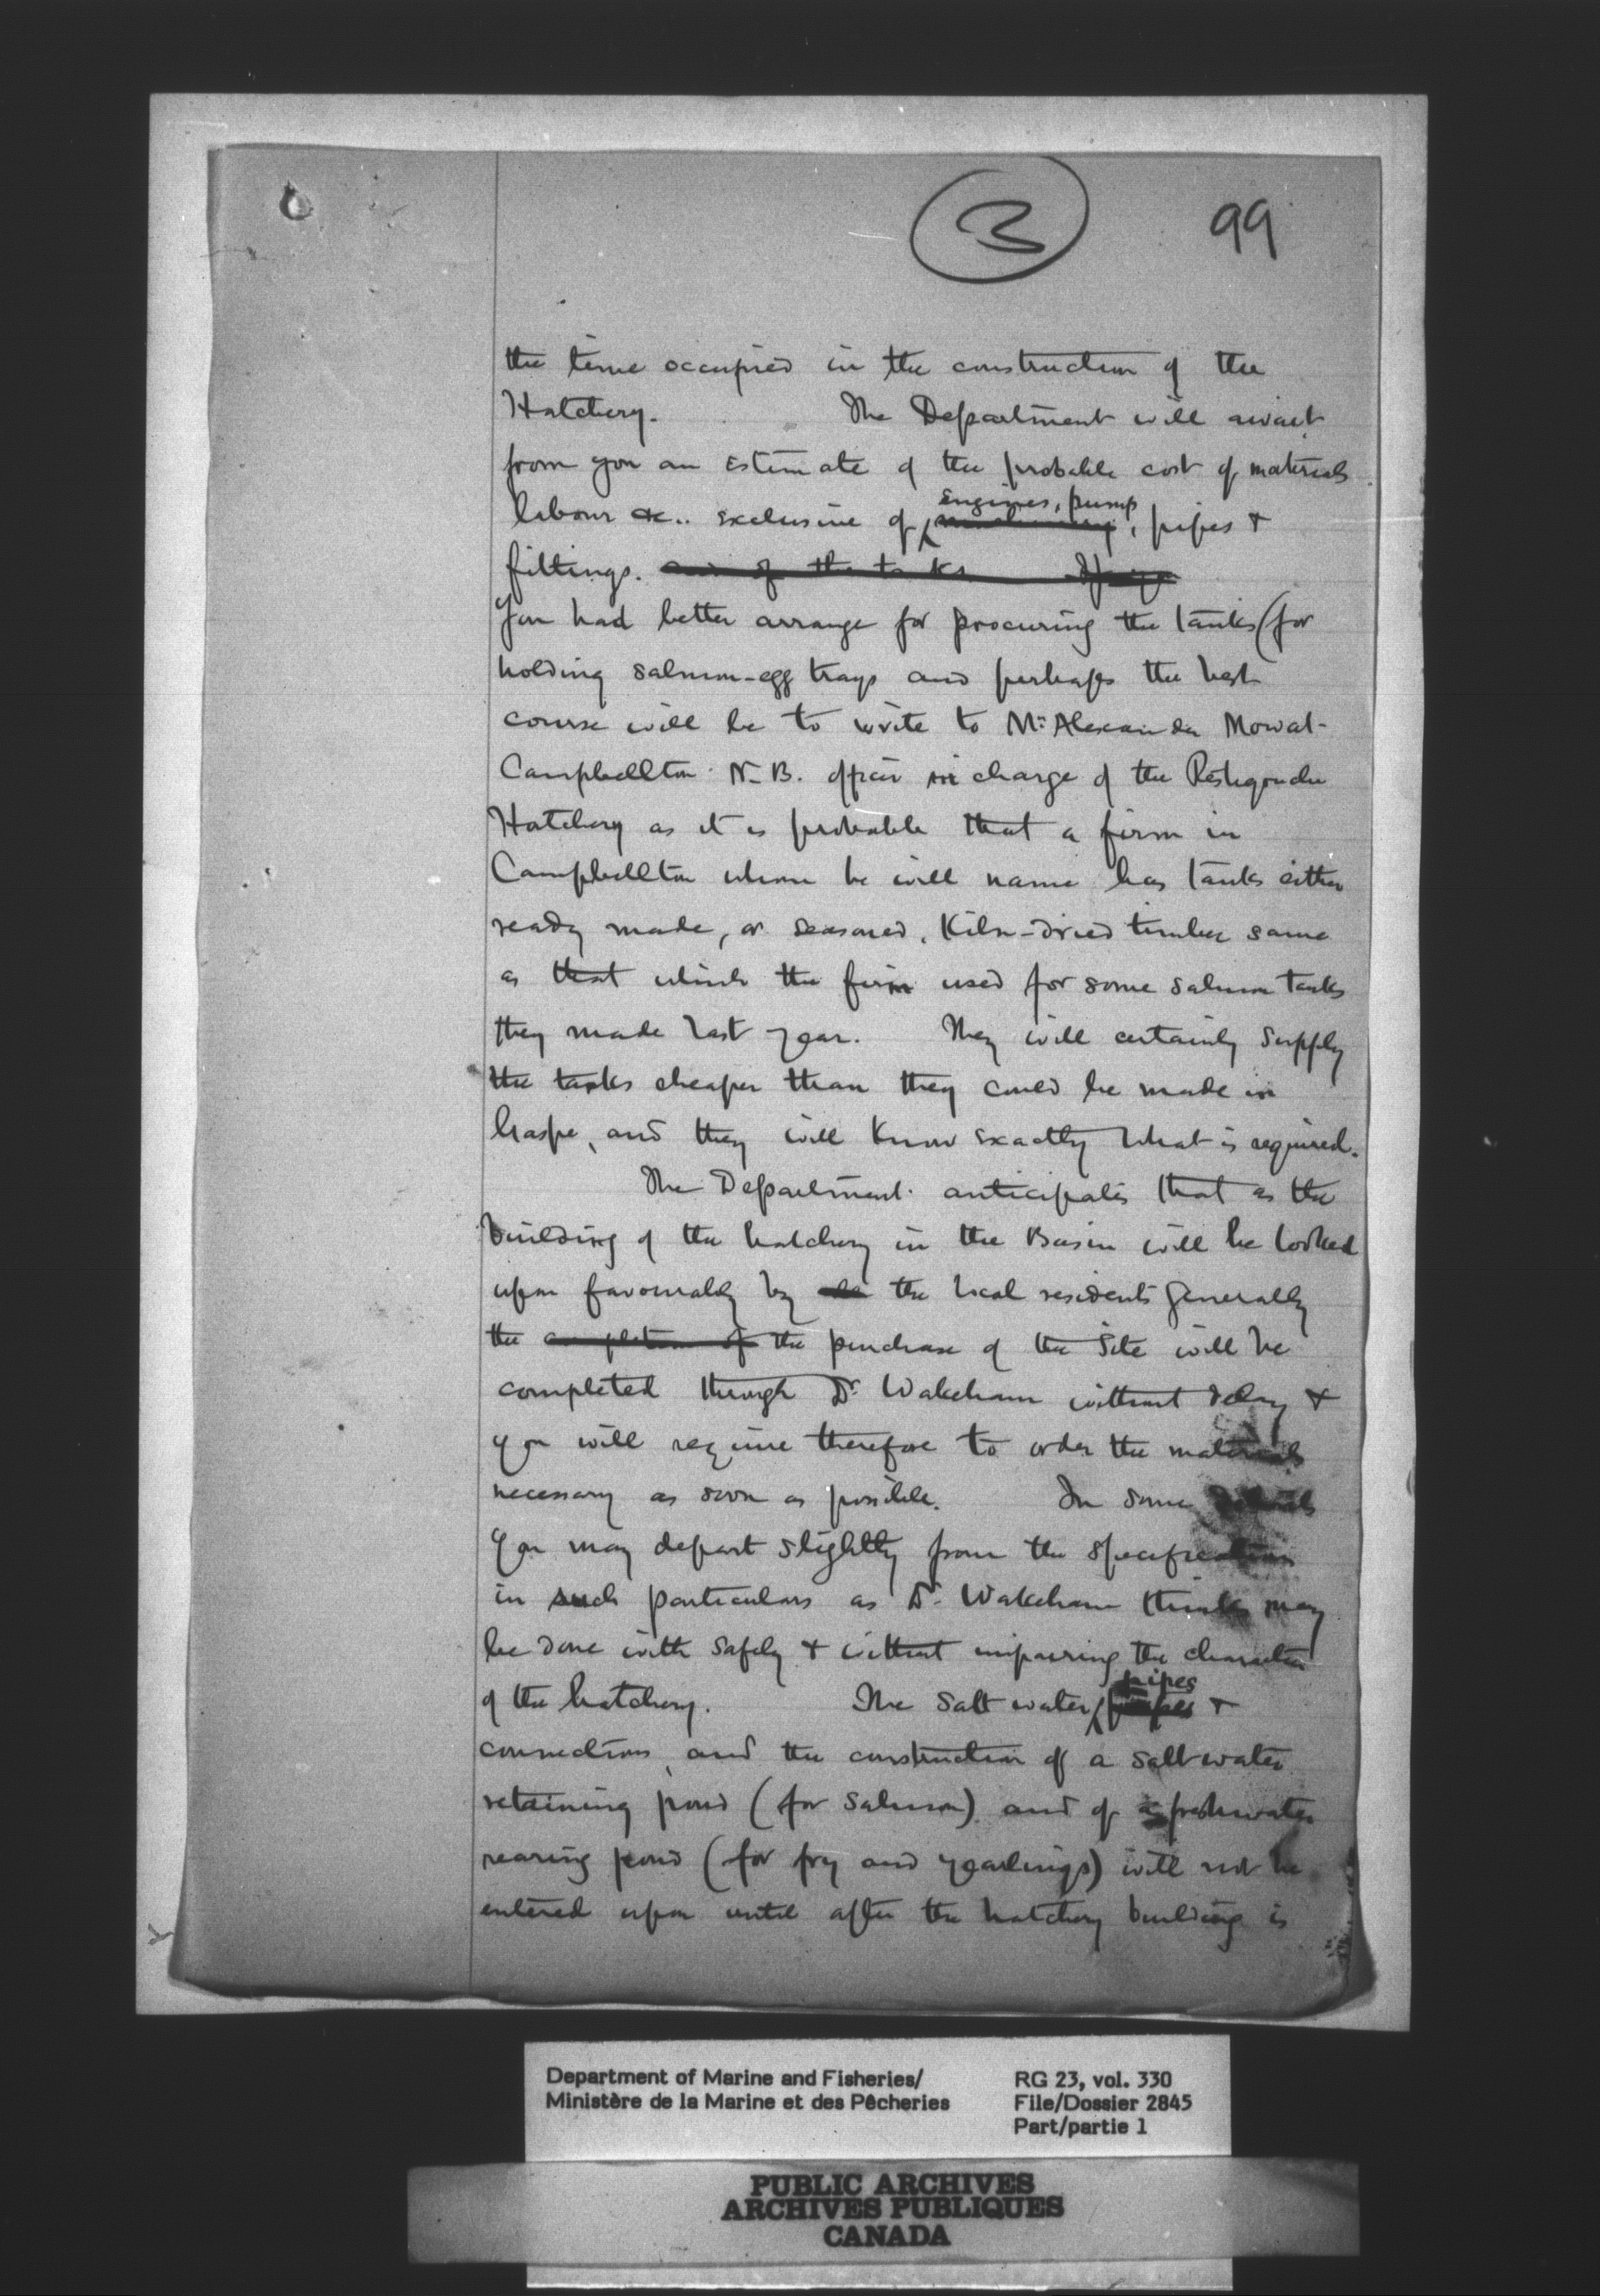 3 99
the time occupied in the construction of the
Hatchery. The Department will await
from you an estimate of the probable cost of materials
engines, pump
labour &c.. exclusive of machinery, pipes &
fittings. and of the tanks
You had better arrange for procuring the tanks (for
holding salmon-egg trays and perhaps the best
course will be to write to Mr. Alexander Mowat
Campbellton N-B. officer in charge of the Restigouche
Hatchery as it is probable that a firm in
Campbellton whom he will name has tanks either
ready made, or seasoned, kiln-dried timber same
as that which the firm used for some salmon tanks
they made last year. They will certainly supply
the tanks cheaper than they could be made in
Gaspe, and they will know exactly what is required.
The Department anticipates that as the
building of the hatchery in the Basin will be looked
upon favourably by the local residents generally
the completion of the purchase of the site will be
completed through Dr. Wakeham without delay &
you will require therefore to order the materials
necessary as soon as possible. In some details
you may depart slightly from the specifications
in such particulars as Dr. Wakeham thinks may
be done with safety & without impairing the character
pipes
of the hatchery. The salt water &
connections, and the construction of a salt-water
retaining pond (for salmon) and of a freshwater
rearing pond (for fry and yearlings) will not be
entered upon until after the hatchery building is
Department of Marine and Fisheries/
Ministère de la Marine et des Pêcheries
RG 23, vol. 330
File/Dossier 2845
Part/partie 1
PUBLIC ARCHIVES
ARCHIVES PUBLIQUES
CANADA